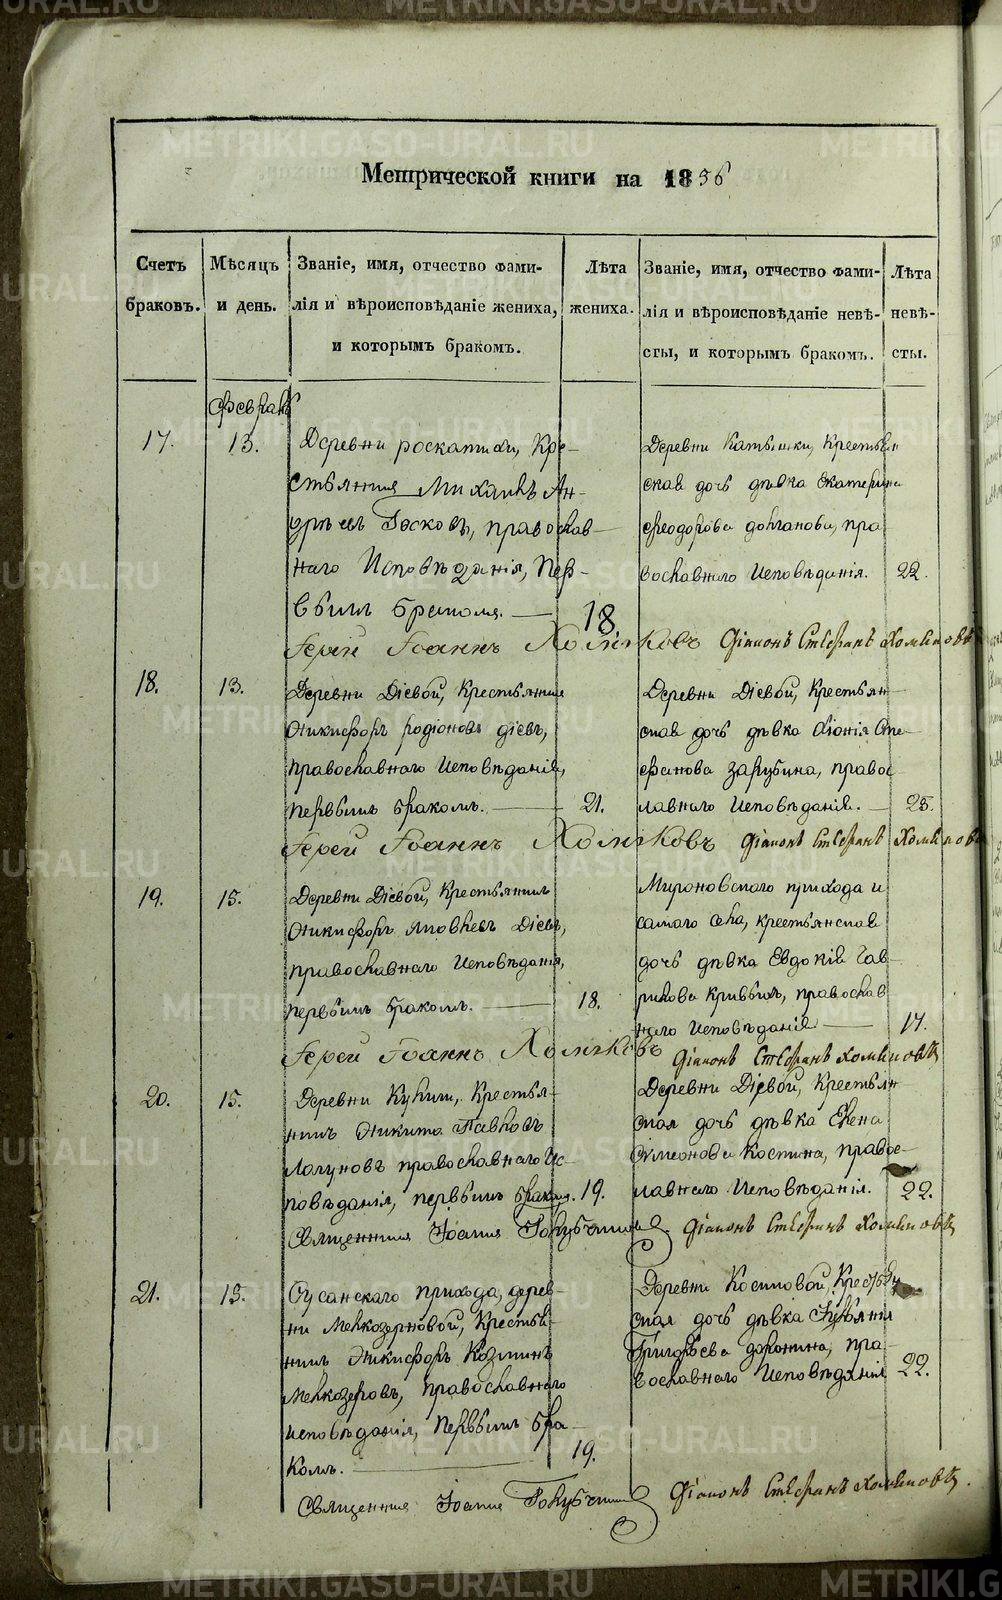 Метрической книги на 1856
Счетъ браковъ.
Мѣсяцъ и день.
Званіе, имя, отчество фами-
лія и вѣроисповѣданіе жениха,
и которымъ бракомъ.
Лѣта жениха.
Званіе, имя, отчество фами-
лія и вѣроисповѣданіе невѣ-
сты, и которымъ бракомъ.
Лѣта невѣ-
сты.
Февраль
17.
13.
Деревни роскатихи, Кре-
стьянинъ Михаилъ Ан-
дрѣевъ Госковъ, православ-
наго Исповѣданія, Пер-
вымъ бракомъ.
18
Деревни Катышки, Крестьян
ская дочь дѣвка Екатерина
Феодорова долганова, пра
вославнаго Исповѣданія.
22.
Іерей Іоаннъ Холмковъ Діаконъ Стефанъ
18.
13.
Деревни Діевой, Крестьянинъ
Никифоръ родіоновъ діевъ,
православнаго Исповѣданія,
первымъ бракомъ.
21.
Деревни Діевой, Крестьян
ская дочь дѣвка Сте
фанова зарубина, право
лавнаго Исповѣданія.
25.
Іерей Іоаннъ Холмковъ Діаконъ Стефанъ
19.
15.
Деревни Діевой, Крестьянинъ
Никифоръ Яковлевъ Діевъ,
православнаго Исповѣданія,
первымъ бракомъ.
18.
Мироновскаго прихода и
самаго села, крестьянская
дочь дѣвка Евдокія Гав
рилова Кривыхъ, православ
наго Исповѣданія
17.
Іерей Іоаннъ Холмковъ Діаконъ Стефанъ
20.
15.
Деревни Кукиш, Крестья-
нинъ Никита Павловъ
Лагуновъ православнаго Ис-
повѣданія, первымъ бракомъ.
19.
Деревни Діевой, Крестьян
ская дочь дѣвка Елена
Симеонова Костина, право-
лавнаго Исповѣданія.
22.
Священникъ Іоаннъ Голубчиковъ Діаконъ Стефанъ
21.
15.
Сусанскаго прихода, дерев-
ни Мелкозеровой, Крестья-
нинъ Никифоръ Козминъ
Мелкозеровъ, православнаго
исповѣданія, Первымъ бра-
комъ.
19.
Деревни Косиковой, Крестьян
ская дочь дѣвка
Григорьева доронина, пра-
вославнаго Исповѣданія
22.
Священникъ Іоаннъ Голубчиковъ Діаконъ Стефанъ
METRIKI.GASO-URAL.RU